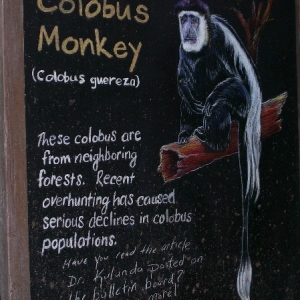 Colobus
Monkey
(Colobus guereza)
These colobus are
from neighboring
forests. Recent
overhunting has caused
serious declines in colobus
populations.
Have you read the article
Dr. Kulunda posted on
the bulletin board?
more!